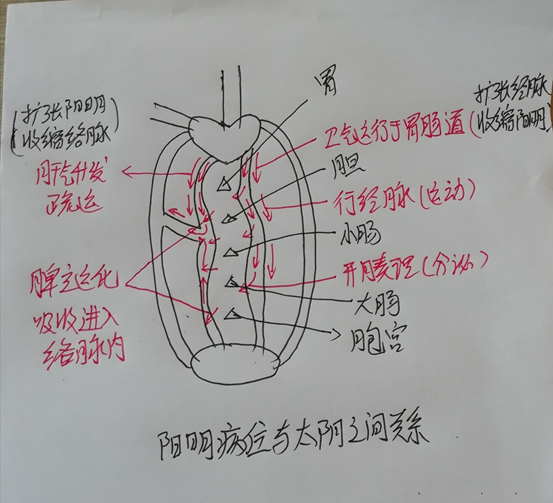 胃
(扩张阳明
收缩络脉
扩张经脉
收缩阳明)
卫气运行于胃肠道
肝气升发
疏运
胆
行经脉(运动)
小肠
脾主运化
吸收进入
络脉内
开腠理(分泌)
大肠
胞宫
阳明病位与太阴之间关系